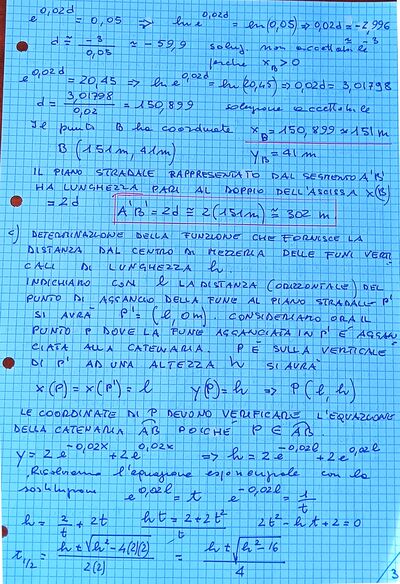 e^0,02d = 0,05 => ln e^0,02d = ln(0,05) => 0,02d = -2,996
d ≅ -3/0,05 ≅ -59,9 soluz. non accettabile -3
perché x_B > 0
e^0,02d = 20,45 => ln e^0,02d = ln(20,45) => 0,02d = 3,01798
d = 3,01798/0,02 = 150,899 soluzione accettabile
Il punto B ha coordinate x_B = 150,899 ≅ 151 m
B (151 m, 41 m) y_B = 41 m
IL PIANO STRADALE RAPPRESENTATO DAL SEGMENTO A'B'
HA LUNGHEZZA PARI AL DOPPIO DELL'ASCISSA X(B)
= 2d A'B' = 2d ≅ 2(151 m) ≅ 302 m
c) DETERMINAZIONE DELLA FUNZIONE CHE FORNISCE LA
DISTANZA DAL CENTRO DI MEZZERIA DELLE FUNI VERTI
CALI DI LUNGHEZZA h.
INDICHIAMO CON l LA DISTANZA (ORIZZONTALE) DEL
PUNTO DI AGGANCIO DELLA FUNE AL PIANO STRADALE P'
SI AVRÀ P' = (l, 0m). CONSIDERIAMO ORA IL
PUNTO P DOVE LA FUNE AGGANCIATA IN P' È AGGAN
CIATA ALLA CATENARIA. P È SULLA VERTICALE
DI P' AD UNA ALTEZZA h SI AVRÀ
x(P) = x(P') = l y(P) = h => P(l, h)
LE COORDINATE DI P DEVONO VERIFICARE L'EQUAZIONE
DELLA CATENARIA AB POICHÉ P ∈ AB.
y = 2e^-0,02x + 2e^0,02x => h = 2e^-0,02l + 2e^0,02l
Risolviamo l'equazione esponenziale con la
sostituzione e^0,02l = t e^-0,02l = 1/t
h = 2/t + 2t ht = 2 + 2t² 2t² - ht + 2 = 0
t_1/2 = (h ± √(h² - 4(2)(2)))/2(2) = (h ± √(h² - 16))/4
3